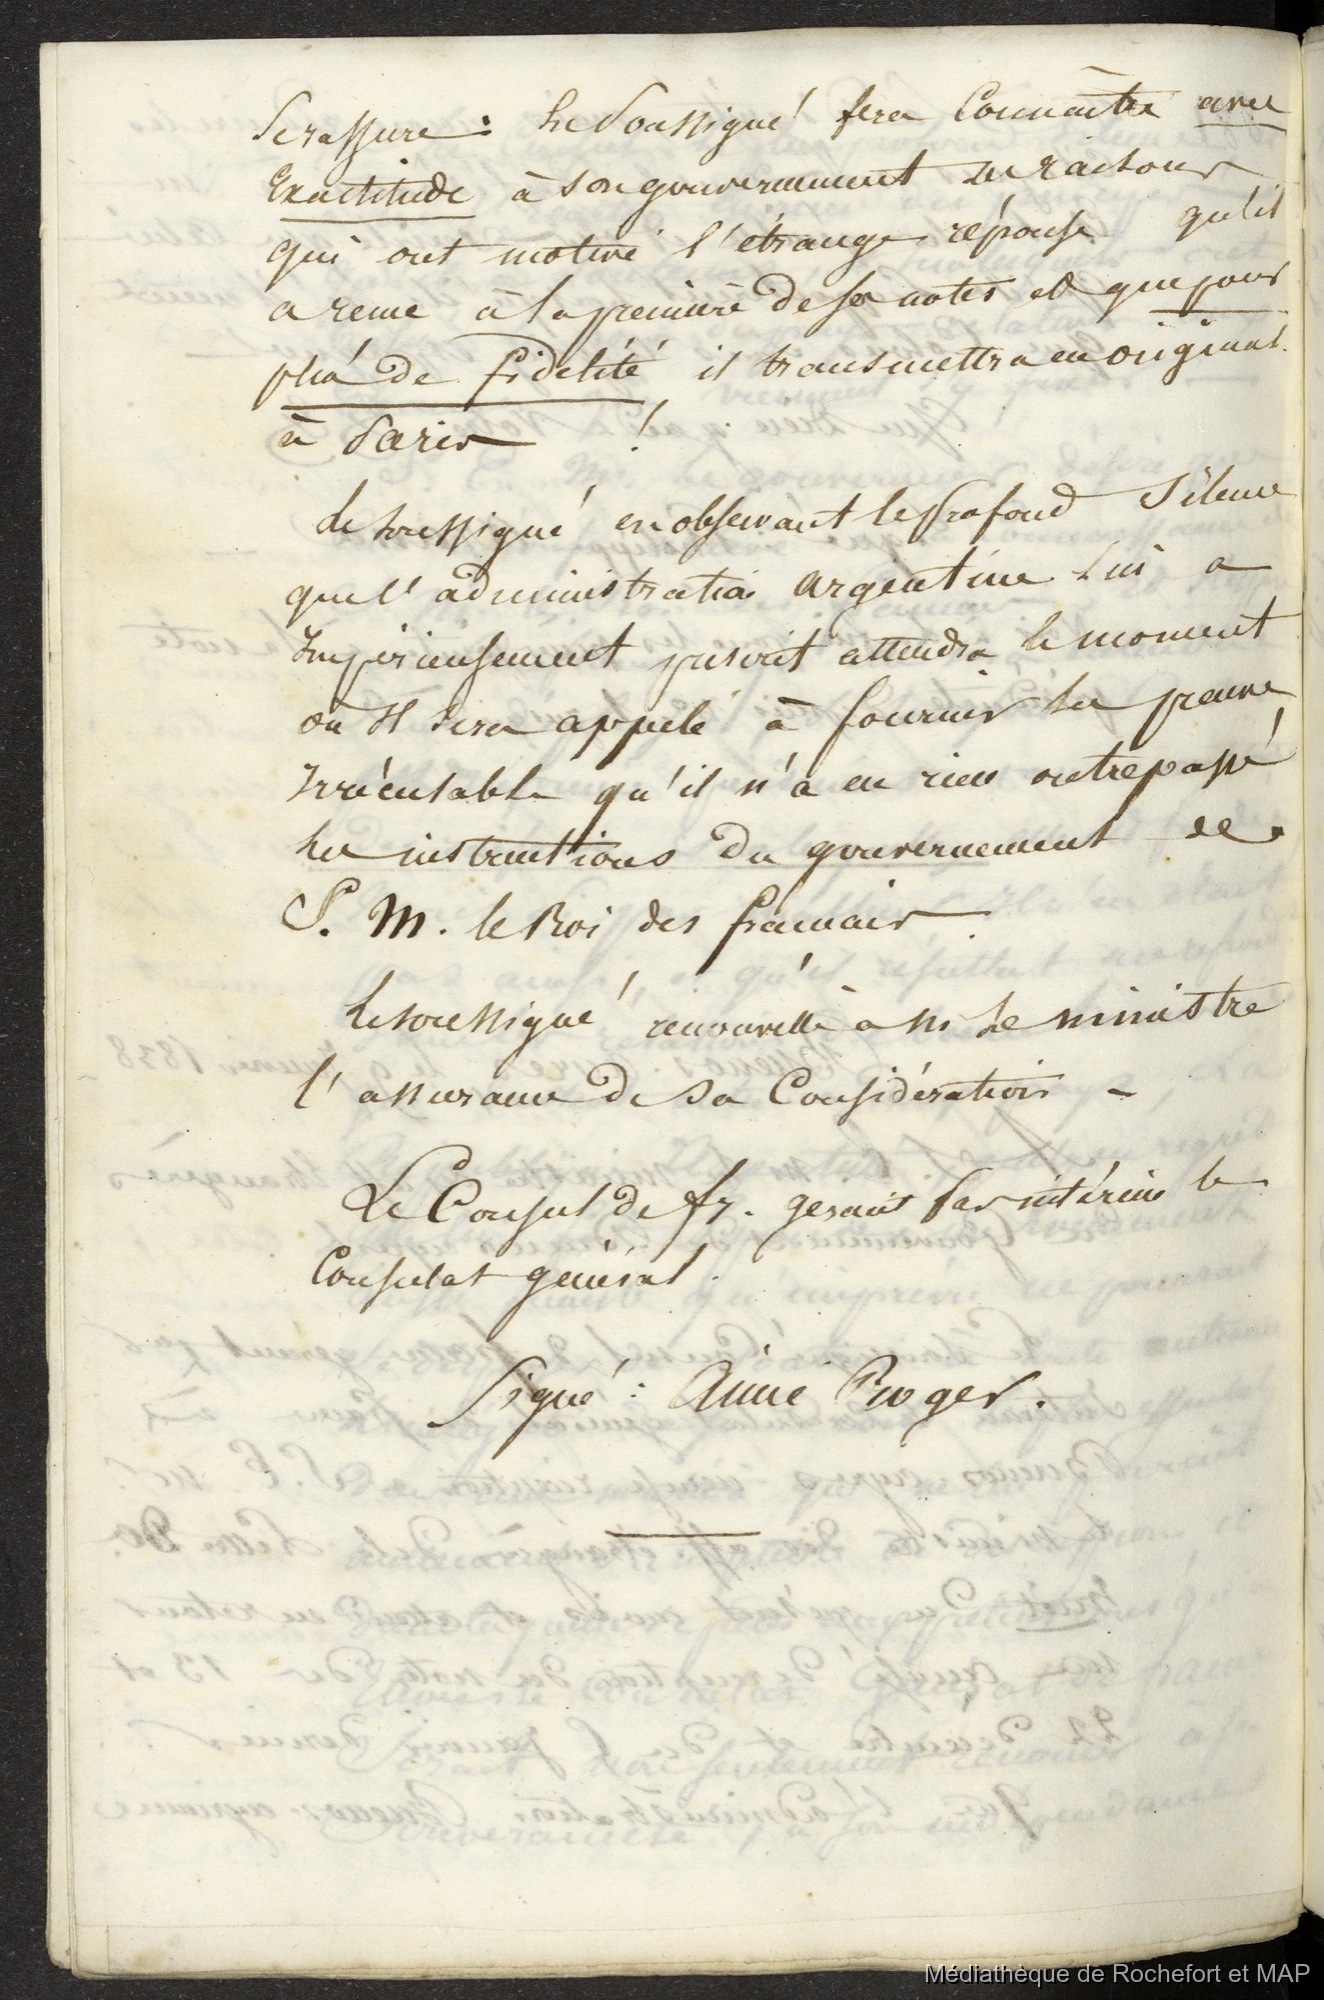 Se rassure : Le Soussigné fera Connaitre avec
Exactitude à son gouvernement les raisons
qui ont motivé l'étrange réponse qu'il
a recue à la premiere de ses notes et que pour
plus de fidélité il transmettra en original
à Paris !
Le soussigné en observant le Profond Silence
que l'administration argentine Lui a
Impérieusement prescrit attendra le moment
où Il sera appelé à fournir la preuve
Irrécusable qu'il n'a en rien outrepassé
les instructions du gouvernement de
S. M. le Roi des francais
Le soussigné renouvelle à M le ministre
l'assurance de sa Considération -
Le Consul de fr. gerant Par intérim le
Consulat général.
Signé : Aimé Roger.
Médiathèque de Rochefort et MAP